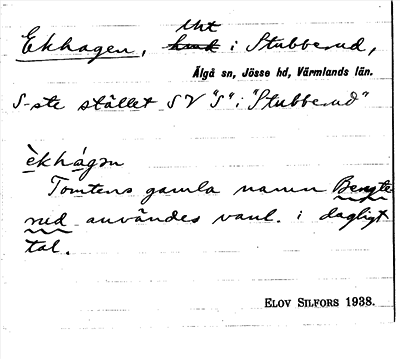 Ekhagen, lht i Stubberud,
Älgå sn, Jösse hd, Värmlands län.
S-ste stället SV "S" i "Stubberud"
èkhágən
Tomtens gamla namn Bengts
rud användes vanl. i dagligt
tal.
ELOV SILFORS 1938.